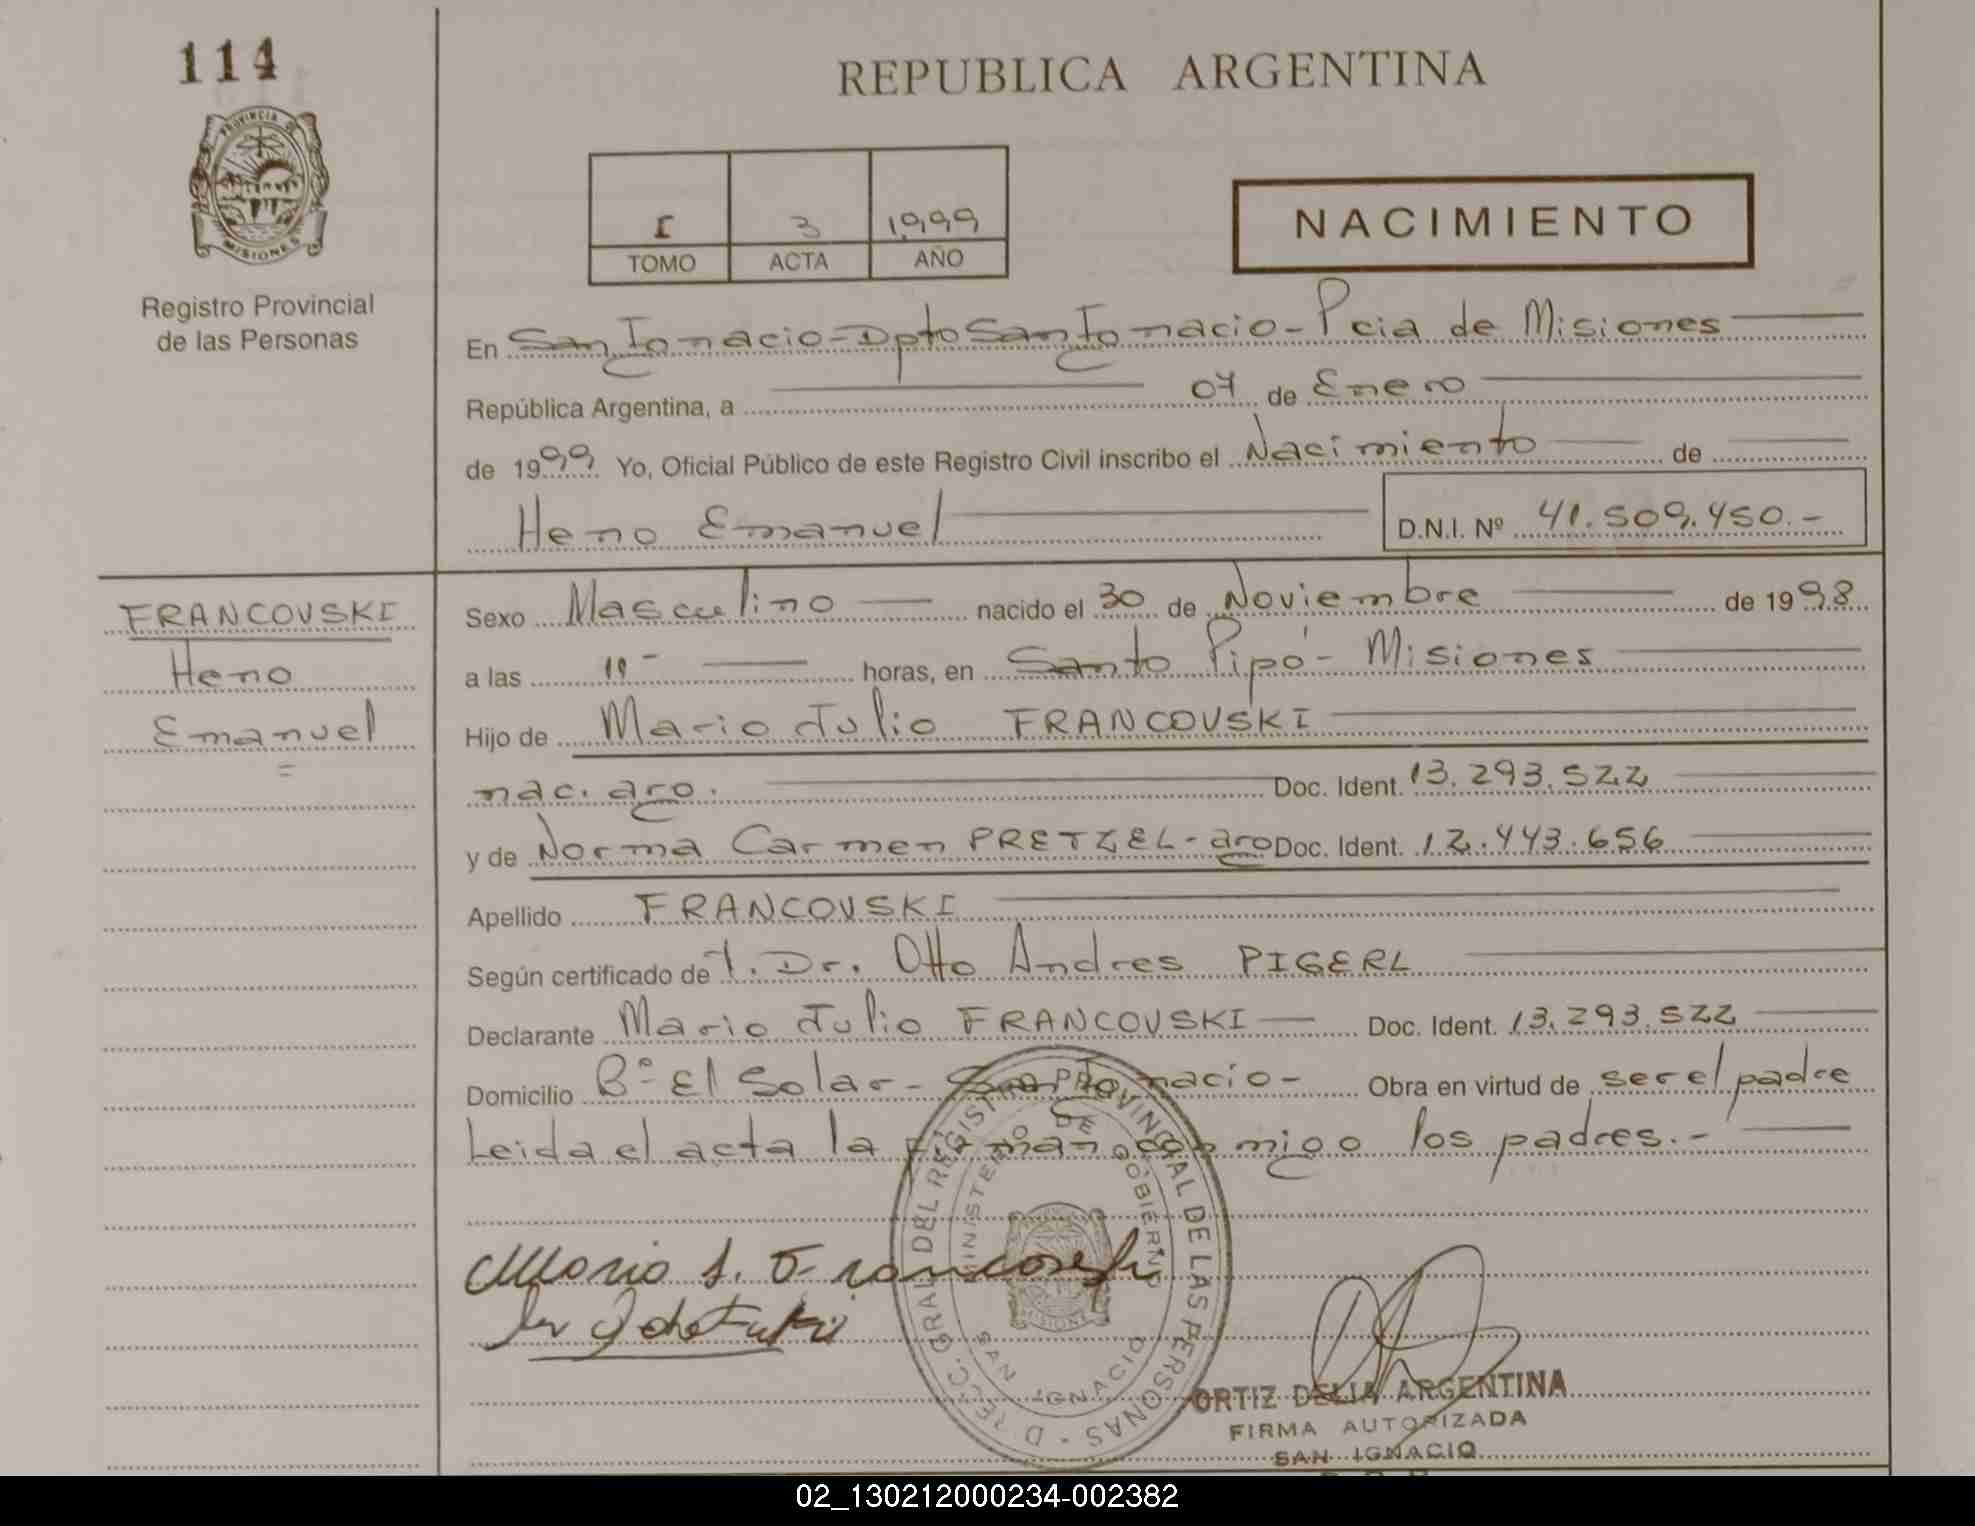 114
PROVINCIA DE
MISIONES
Registro Provincial
de las Personas
REPUBLICA ARGENTINA
I 3 1999
TOMO ACTA AÑO
NACIMIENTO
En San Ignacio - Dpto San Ignacio - Pcia de Misiones
República Argentina, a 07 de Enero
de 1999 Yo, Oficial Público de este Registro Civil inscribo el Nacimiento de
Heno Emanuel D.N.I. Nº 41.509.450.-
FRANCOVSKI
Heno
Emanuel
Sexo Masculino nacido el 30 de Noviembre de 1998
a las horas, en Santo Pipó - Misiones
Hijo de Mario Julio FRANCOVSKI
nac. arg. Doc. Ident. 13.293.522
y de Norma Carmen PRETZEL - arg Doc. Ident. 12.443.656
Apellido FRANCOVSKI
Según certificado de Dr. Otto Andres PIGERL
Declarante Mario Julio FRANCOVSKI Doc. Ident. 13.293.522
Domicilio Bº El Solar - San Ignacio - Obra en virtud de ser el padre
Leida el acta la firman conmigo los padres.-
DIRECC. GRAL DEL REGISTRO PROVINCIAL DE LAS PERSONAS -
MINISTERIO DE GOBIERNO
MISIONES
SAN IGNACIO
Mario J. Francovski
ORTIZ DELIA ARGENTINA
FIRMA AUTORIZADA
SAN IGNACIO
02_130212000234-002382